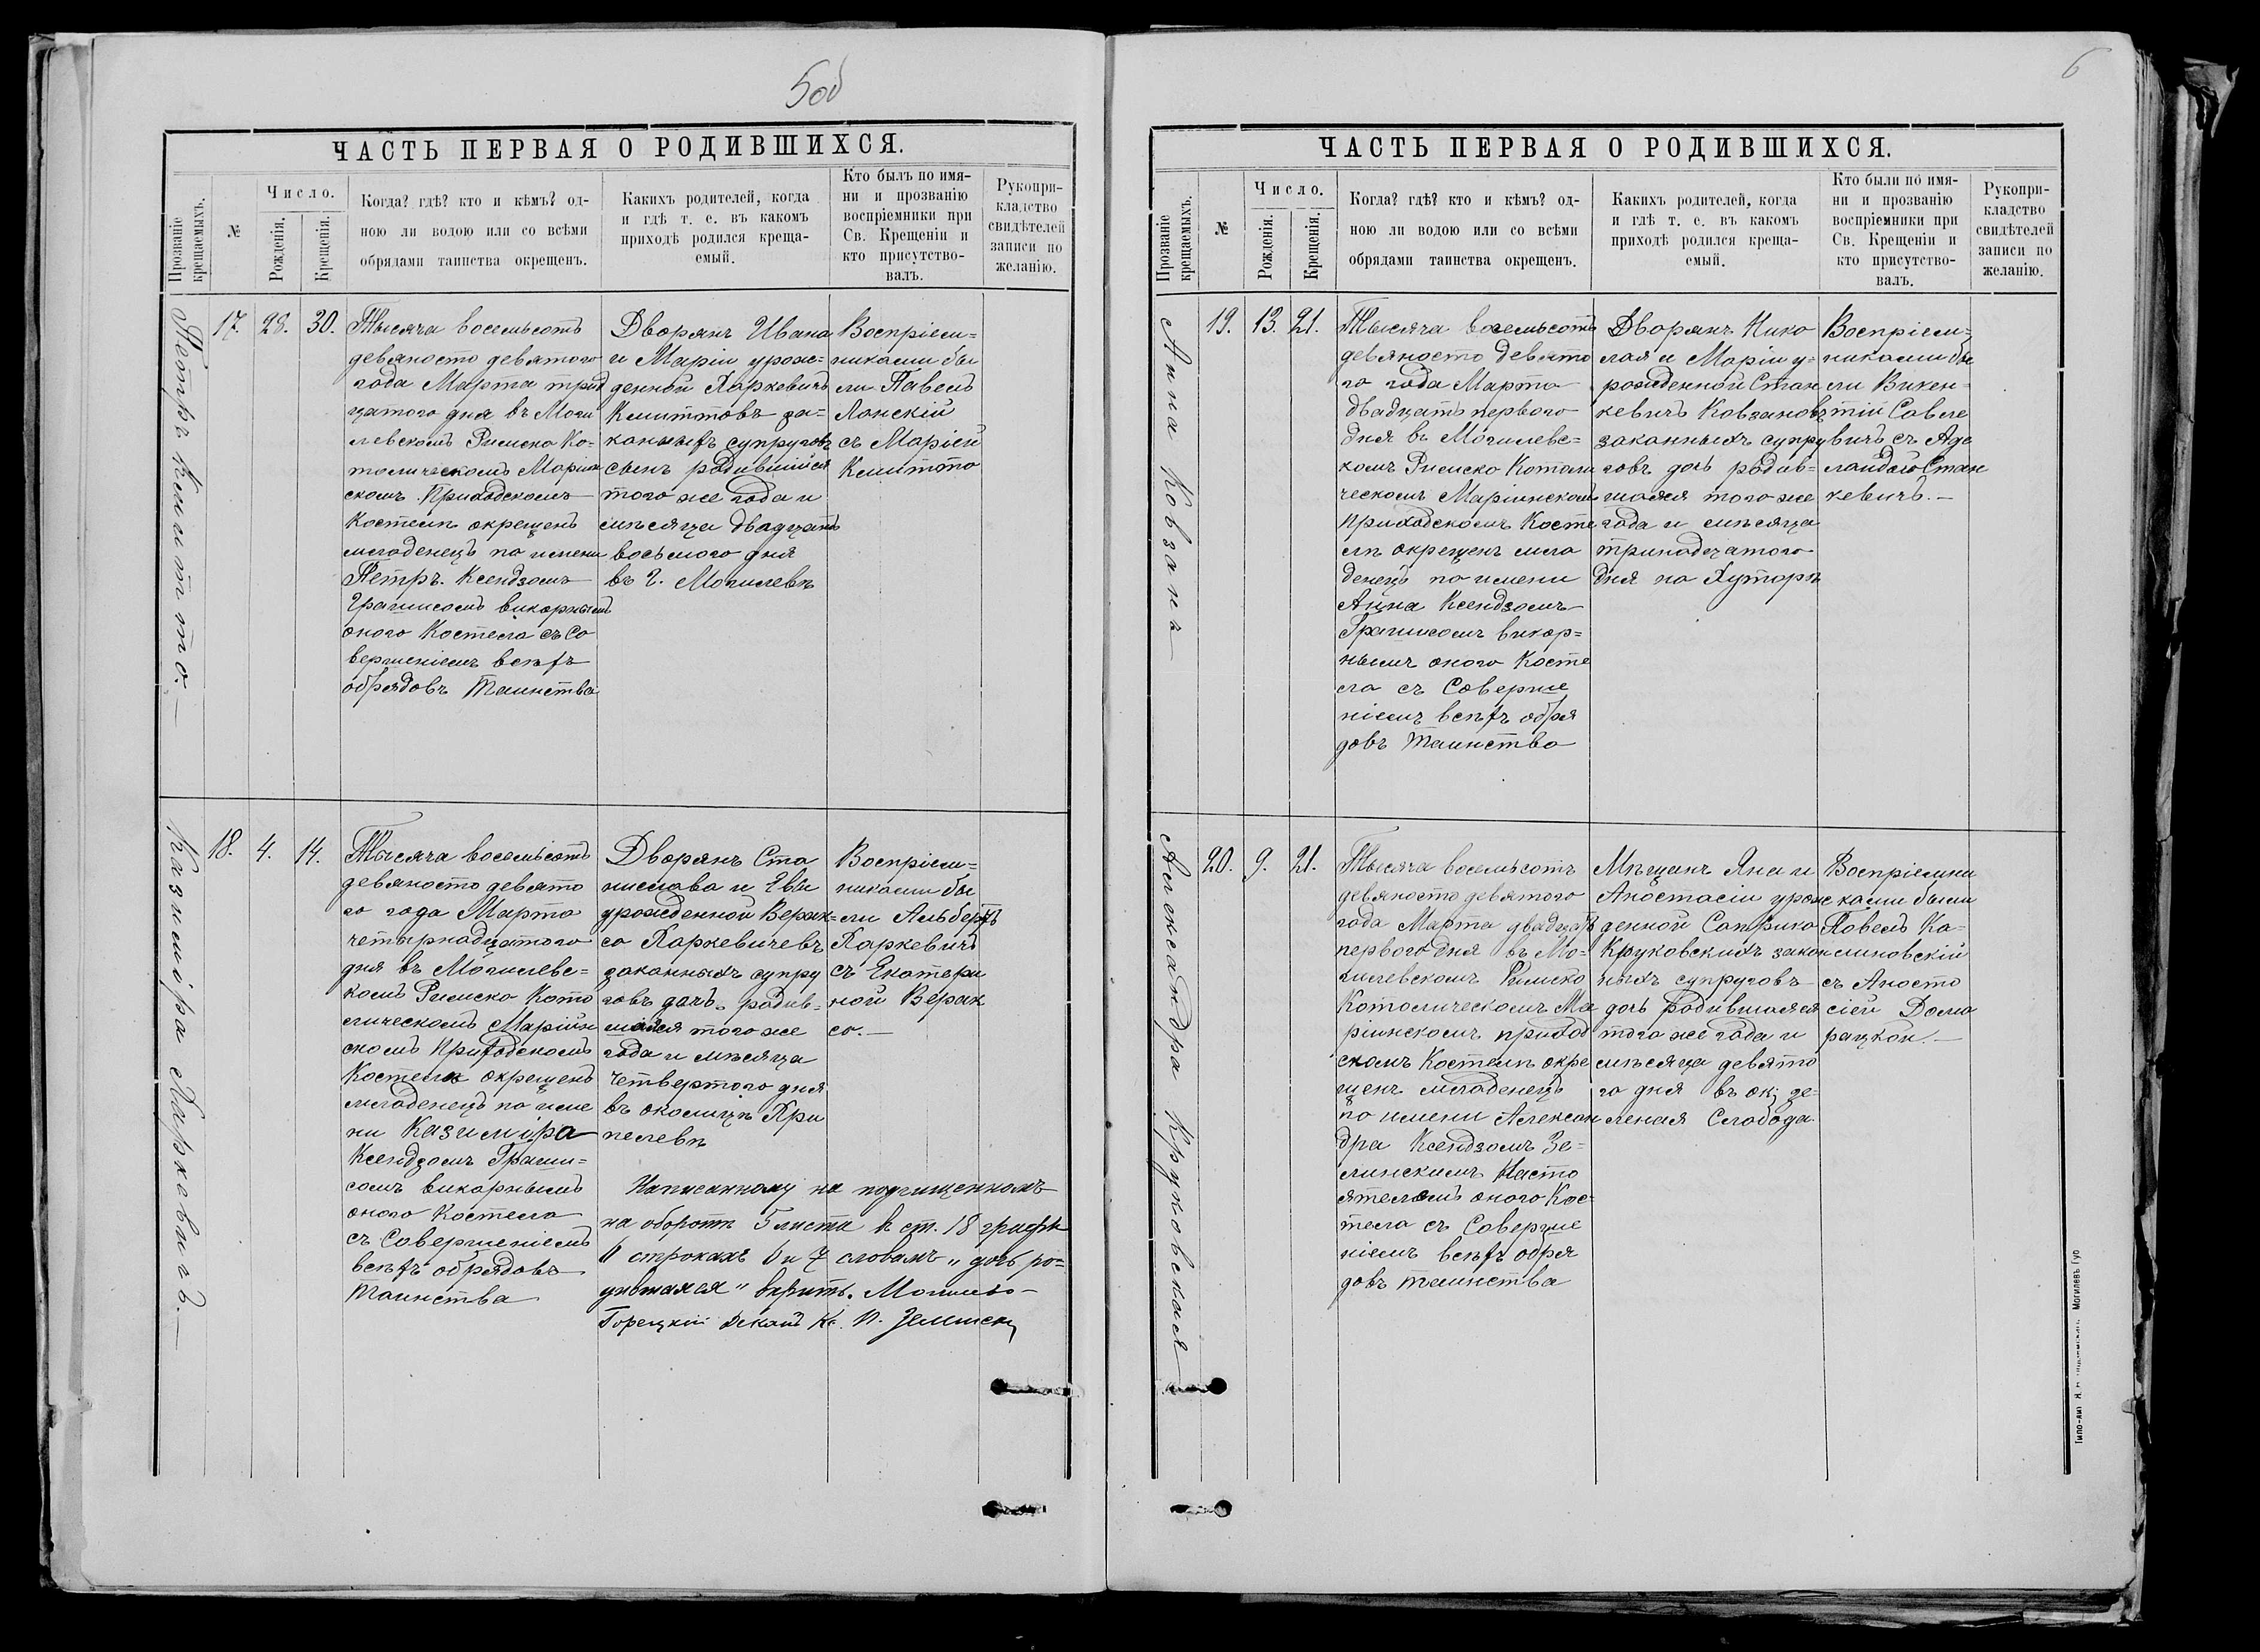 5об
ЧАСТЬ ПЕРВАЯ О РОДИВШИХСЯ.
Прозваніе крещаемыхъ.
№
Число.
Рожденія.
Крещенія.
Когда? гдѣ? кто и кѣмъ? од-
ною ли водою или со всѣми
обрядами таинства окрещенъ.
Какихъ родителей, когда
и гдѣ т. е. въ какомъ
приходѣ родился креща-
емый.
Кто былъ по имя-
ни и прозванію
воспріемники при
Св. Крещеніи и
кто присутство-
валъ.
Рукопри-
кладство
свидѣтелей
записи по
желанію.
Петръ Кмитто.—
17.
28.
30.
Тысяча восемьсотъ
девяносто девятого
года Марта трид
цатого дня въ Моги
левскомъ Римско Ка-
толическомъ Маріин
скомъ Приходскомъ
Костелѣ окрещенъ
младенецъ по имени
Петръ. Ксендзомъ
викарнымъ
оного Костела съ Со
вершеніемъ всѣхъ
обрядовъ Таинства
Дворянъ Ивана
и Маріи урож-
денной Харкевичъ
Кмиттовъ за-
конныхъ супруговъ
сынъ родившійся
того же года и
мѣсяца двадцать
восьмого дня
въ г. Могилевѣ
Воспріем-
никами бы
ли Павелъ
Лонскій
съ Маріей
Кмитто
Казиміра Харкевичъ.—
18.
4.
14.
Тысяча восемьсотъ
девяносто девято
го года Марта
четырнадцатого
дня въ Могилевс-
комъ Римско Като
лическомъ Маріин
скомъ Приходскомъ
Костелѣ окрещенъ
младенецъ по име
ни Казиміра
Ксендзомъ
викарнымъ
оного Костела
съ Совершеніемъ
всѣхъ обрядовъ
Таинства
Дворянъ Ста
нислава и Евы
урожденной Верак-
со Харкевичевъ
законныхъ супру
говъ дочь родив-
шаяся того же
года и мѣсяца
четвертого дня
въ околицѣ Кри
пелевѣ
Воспріем-
никами бы
ли Альбертъ
Харкевичъ
съ Екатери
ной Верак
со.—
Написанному на подчищенномъ
на оборотѣ 5 листа въ ст. 18 графѣ
II строкахъ 6 и 7 словамъ „дочь ро-
дившаяся“ вѣрить. Могилево-
Горецкій Деканъ Кс.
6
ЧАСТЬ ПЕРВАЯ О РОДИВШИХСЯ.
Прозваніе крещаемыхъ.
№
Число.
Рожденія.
Крещенія.
Когда? гдѣ? кто и кѣмъ? од-
ною ли водою или со всѣми
обрядами таинства окрещенъ.
Какихъ родителей, когда
и гдѣ т. е. въ какомъ
приходѣ родился креща-
емый.
Кто были по имя-
ни и прозванію
воспріемники при
Св. Крещеніи и
кто присутство-
валъ.
Рукопри-
кладство
свидѣтелей
записи по
желанію.
Анна Ковзанъ—
19.
13.
21.
Тысяча восемьсотъ
девяносто девято
го года Марта
двадцать первого
дня въ Могилевс-
комъ Римско Католи
ческомъ Маріинскомъ
Приходскомъ Косте
лѣ окрещенъ мла
денецъ по имени
Анна Ксендзомъ
викар-
нымъ оного Косте
ла съ Соверше
ніемъ всѣхъ обря
довъ Таинства
Дворянъ Нико
лая и Маріи у-
рожденной Стан
кевичъ Ковзановъ
законныхъ супру
говъ дочь родив-
шаяся того же
года и мѣсяца
тринадцатого
дня на Хуторѣ
Воспріем-
никами бы
ли Викен-
тій Савле
вичъ съ Аде
лаидою Стан
кевичъ.—
Александра Круковская—
20.
9.
21.
Тысяча восемьсотъ
девяносто девятого
года Марта двадцать
первого дня въ Мо-
гилевскомъ Римско
Католическомъ Ма
ріинскомъ приход
скомъ Костелѣ окре
щенъ младенецъ
по имени Алексан
дра Ксендзомъ Зе-
линскимъ Насто
ятелемъ оного Кос-
тела съ Соверше
ніемъ всѣхъ обря
довъ таинства
Мѣщанъ Яна и
Анастасіи урож
денной Сапрыко
Круковскихъ закон
ныхъ супруговъ
дочь родившаяся
того же года и
мѣсяца девято
го дня въ ок. Зе-
леная Слобода
Воспріемни
ками были
Павелъ Ка-
линовскій
съ Анаста
сіей Дома
рацкой.—
Могилевъ Губ